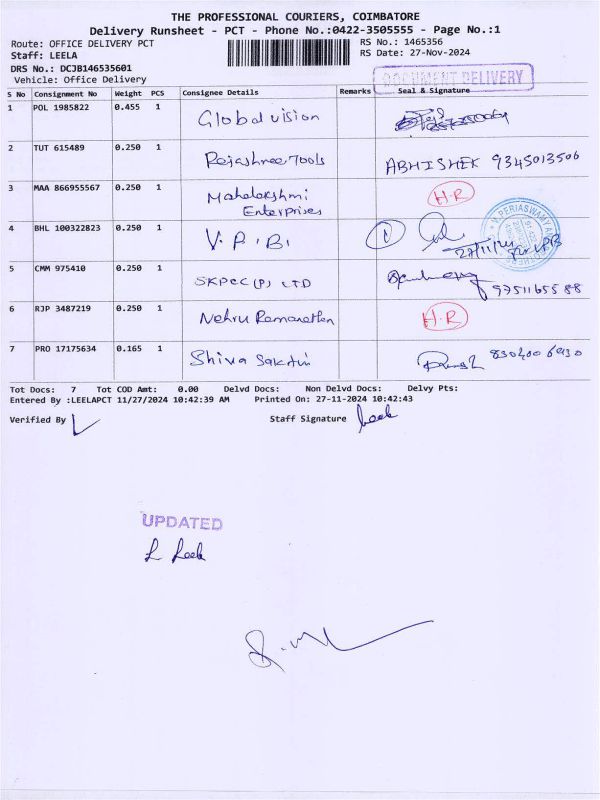 THE PROFESSIONAL COURIERS, COIMBATORE
Delivery Runsheet - PCT - Phone No.:0422-3505555 - Page No.:1
Route: OFFICE DELIVERY PCT
RS No.: 1465356
Staff: LEELA
RS Date: 27-Nov-2024
DRS No.: DCJB146535601
Vehicle: Office Delivery
DOCUMENT DELIVERY
S No Consignment No Weight PCS Consignee Details Remarks Seal & Signature
1 POL 1985822 0.455 1 Global vision
2 TUT 615489 0.250 1 Rejashree Tools ABHISHEK 9345013506
3 MAA 866955567 0.250 1 Mahalakshmi Enterprises H.R
4 BHL 100322823 0.250 1 V.P.B. 27/11/24 for VPB
V. PERIASWAMY AND BROTHERS
5 CMM 975410 0.250 1 SKPCC (P) LTD 9751165588
6 RJP 3487219 0.250 1 Nehru Ramanathan H.R
7 PRO 17175634 0.165 1 Shiva Sakthi
Tot Docs: 7 Tot COD Amt: 0.00 Delvd Docs: Non Delvd Docs: Delvy Pts:
Entered By :LEELAPCT 11/27/2024 10:42:39 AM Printed On: 27-11-2024 10:42:43
Verified By Staff Signature
UPDATED